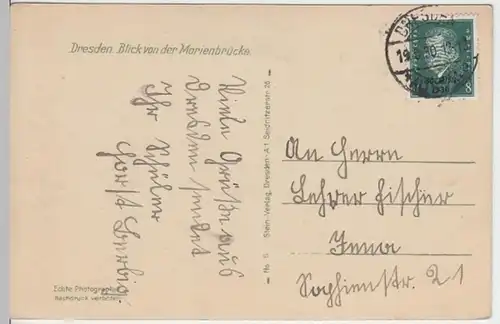 Dresden. Blick von der Marienbrücke.
Viele Grüße aus
Dresden sendet
Ihr Schüler
Horst
Echte Photographie
Nachdruck verboten
No. 6 Stein-Verlag, Dresden-A1 Seidnitzerstr. 26
DRESDEN
8
An Herrn
Lehrer Fischer
Jena
Sophienstr. 21